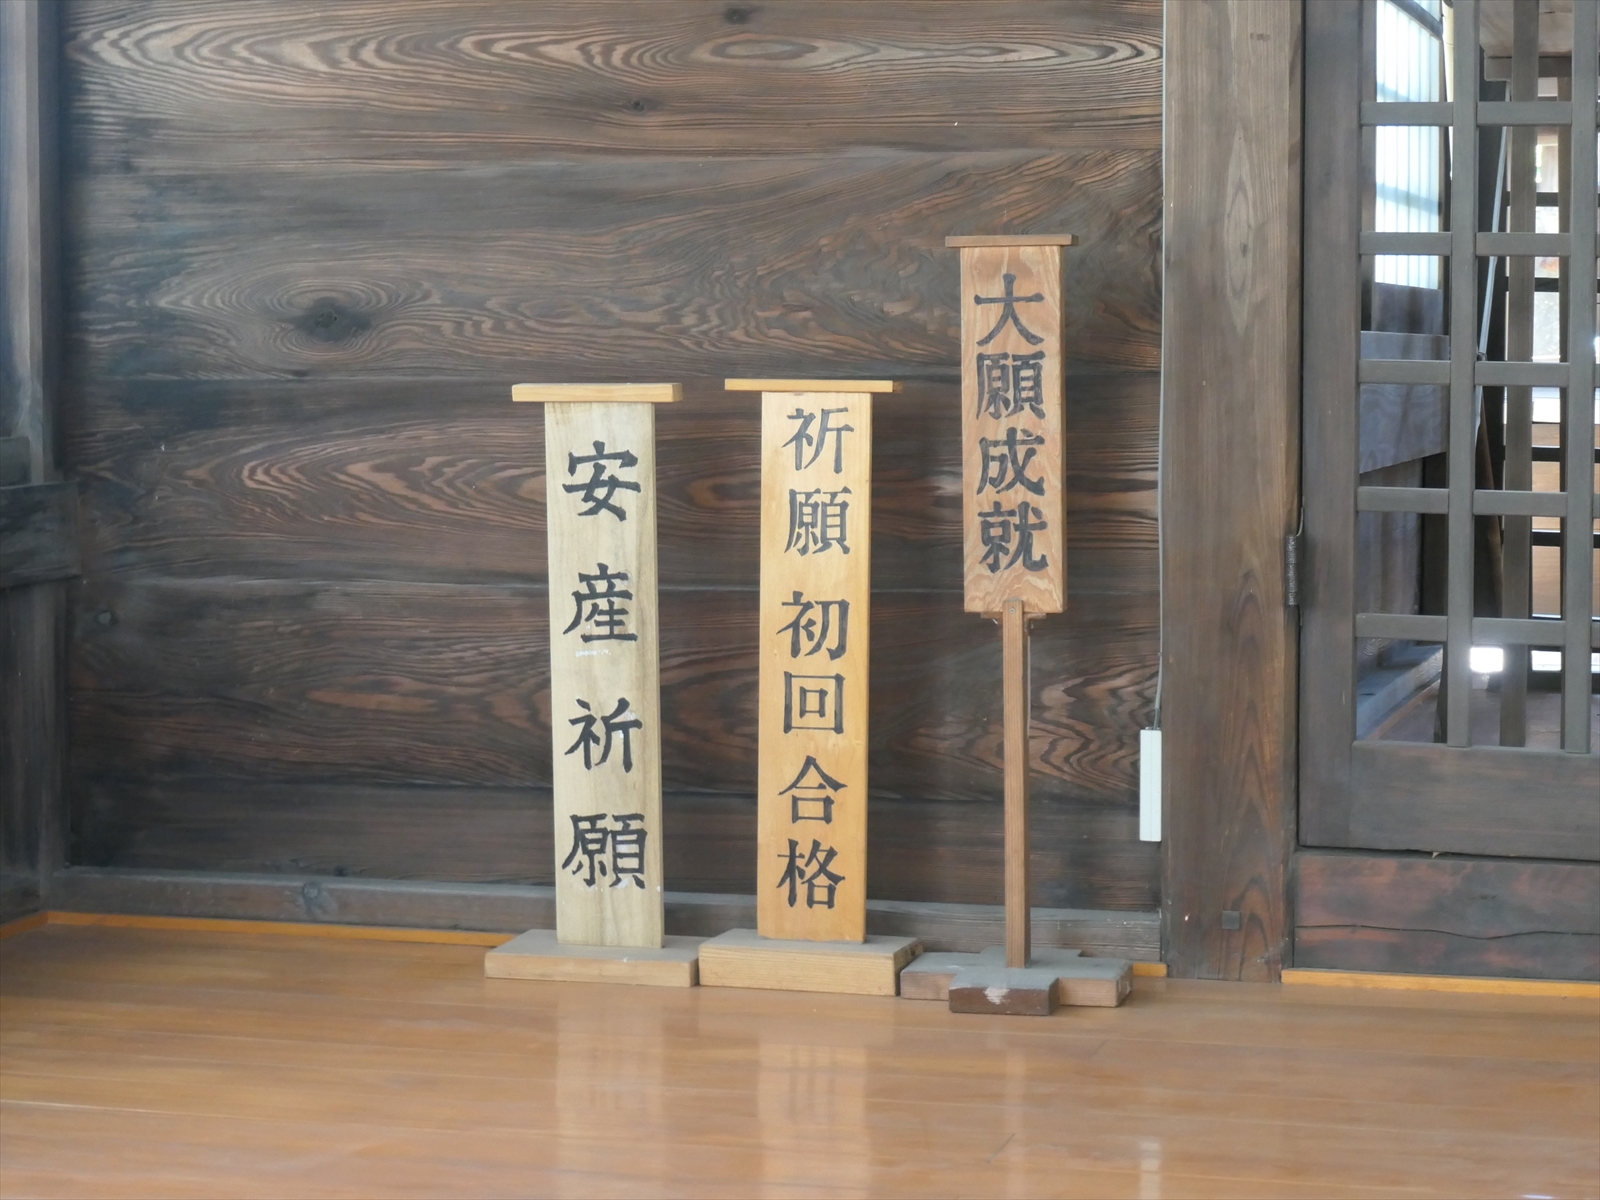 大願成就
祈願 初回合格
安産祈願